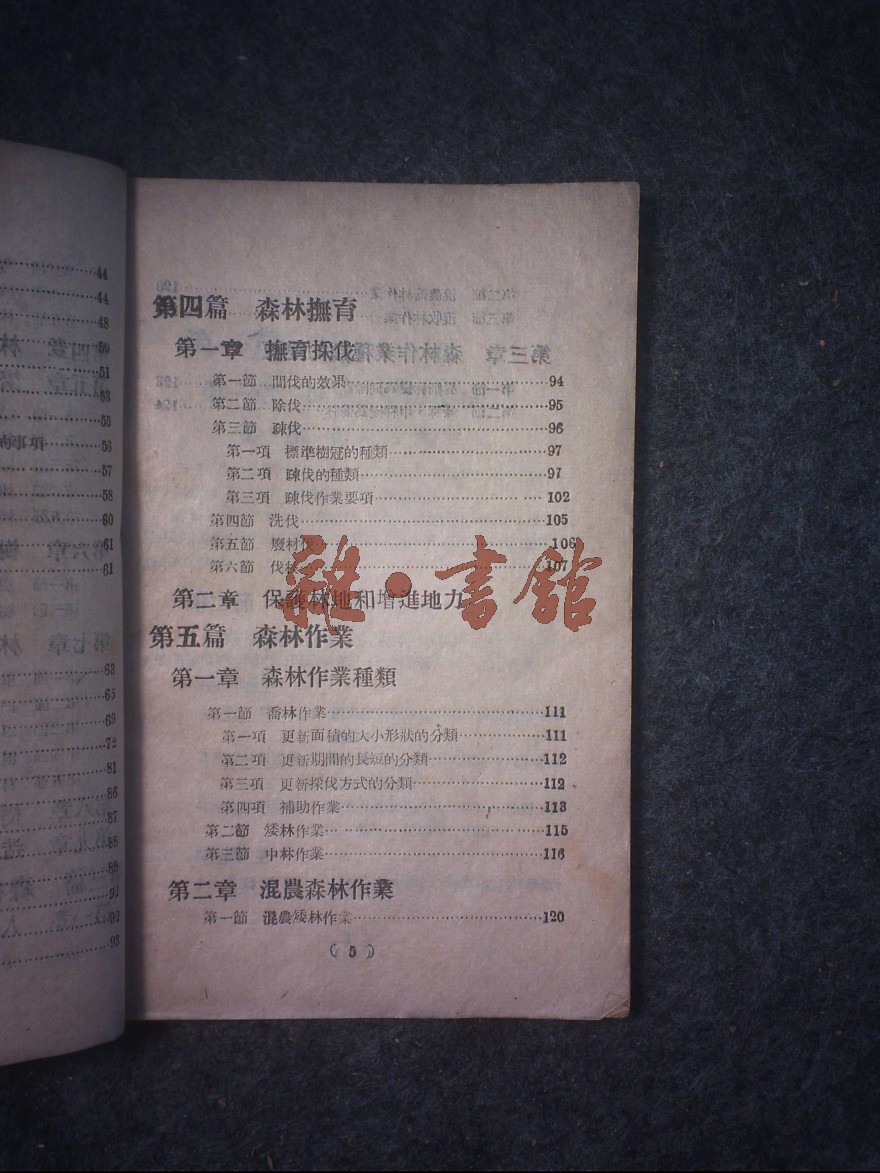 44
44
48
50
51
53
55
56
57
58
60
61
61
63
65
69
72
81
86
87
88
88
92
92
93
第四篇 森林撫育
第一章 撫育採伐
第一節 間伐的效果 94
第二節 除伐 95
第三節 疎伐 96
第一項 標準樹冠的種類 97
第二項 疎伐的種類 97
第三項 疎伐作業要項 102
第四節 洗伐 105
第五節 廢材伐 106
第六節 伐 107
第二章 保護林地和增進地力
第五篇 森林作業
第一章 森林作業種類
第一節 喬林作業 111
第一項 更新面積的大小形狀的分類 111
第二項 更新期間的長短的分類 112
第三項 更新採伐方式的分類 112
第四項 補助作業 113
第二節 矮林作業 115
第三節 中林作業 116
第二章 混農森林作業
第一節 混農矮林作業 120
( 5 )
雜·書館